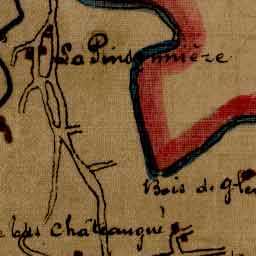 La Pinsonnière
Bois de Gle
e bas Châteaugué